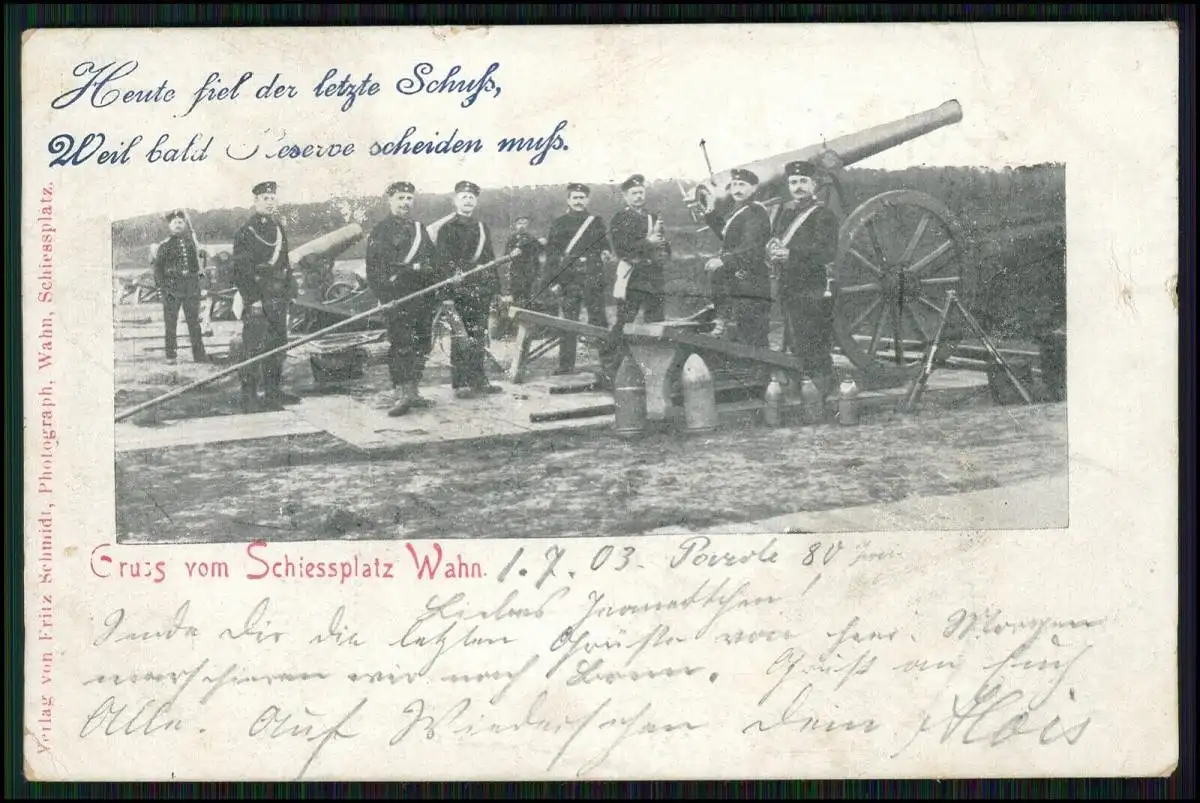 Heute fiel der letzte Schuß,
Weil bald Reserve scheiden muß.
Verlag von Fritz Schmidt, Photograph, Wahn, Schiessplatz.
Gruss vom Schiessplatz Wahn. 1.7.03. Parole 80
Liebes Jeannettchen!
Sende Dir die letzten Grüße von hier. Morgen
marschieren wir nach Bonn. Gruß an Euch
Alle. Auf Wiedersehen Dein Alois